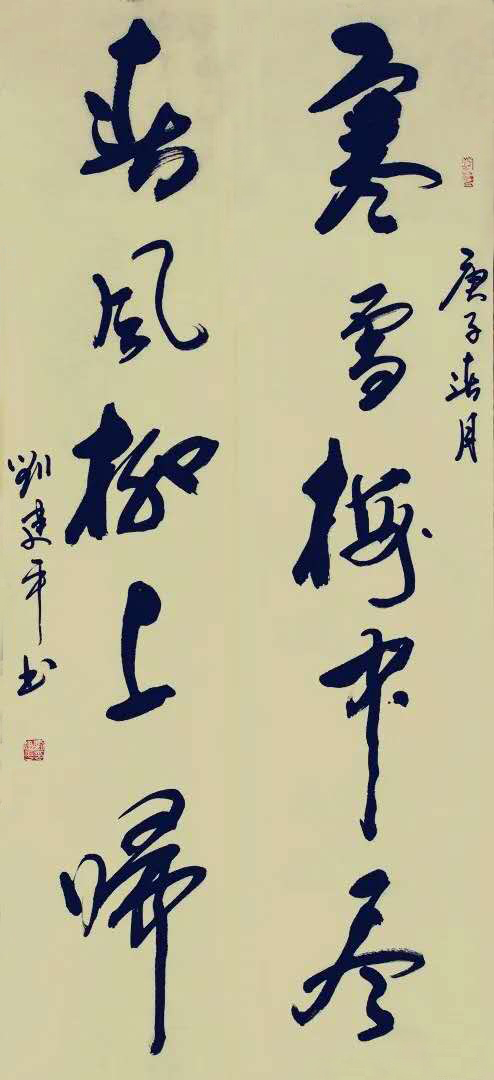 庚子春月
寒雪梅中尽
春风柳上歸
劉建平书